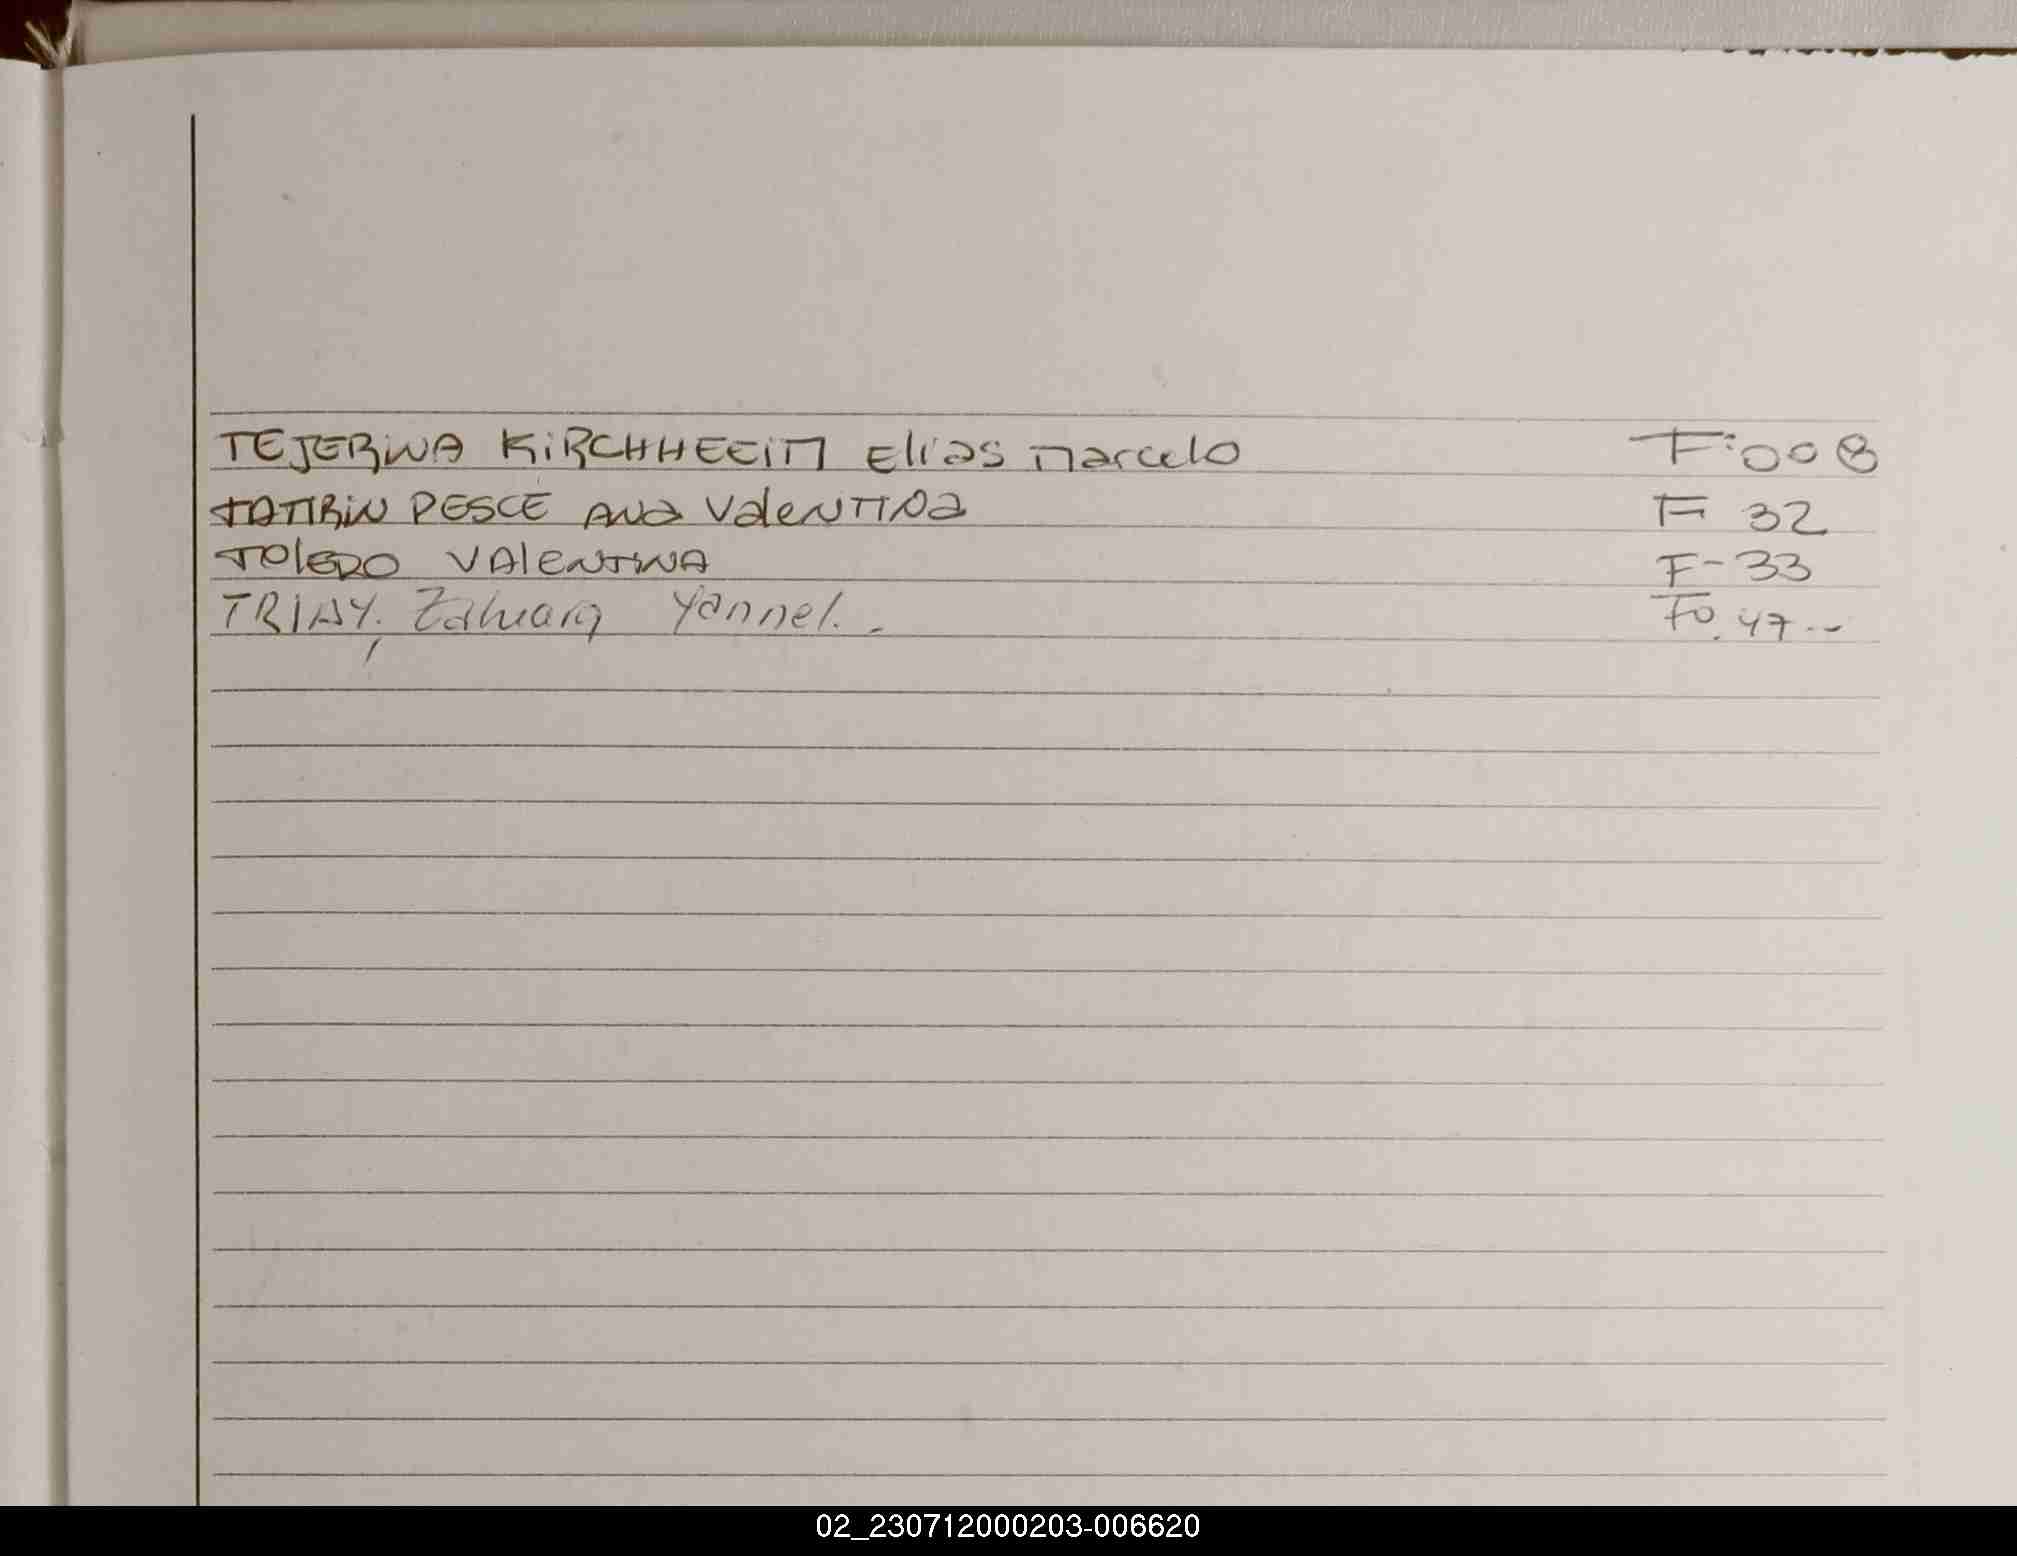 TEJERINA KIRCHHEEIM Elias Marcelo F:008
TAMBIN PESCE ANA ValeNTINa F 32
TOLEDO VALENTINA F-33
TRIAY, Yannel.- Fo. 47--
02_230712000203-006620